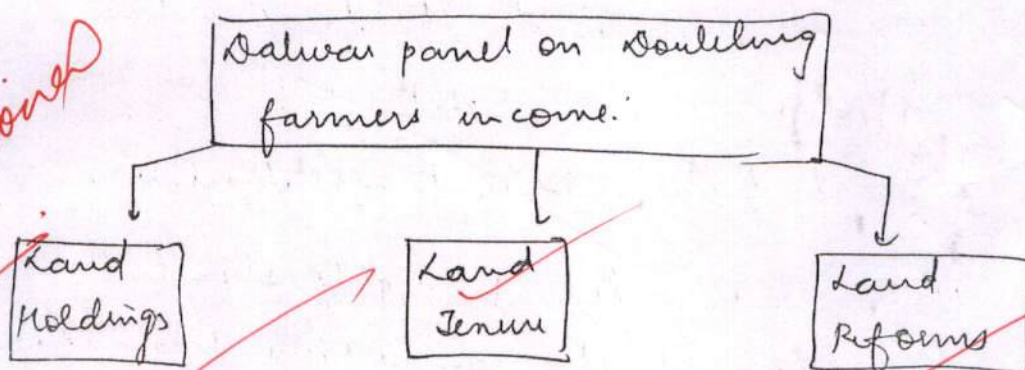 Dalwai panel on Doubling
farmers income.
Land
Holdings
Land
Tenure
Land
Reforms